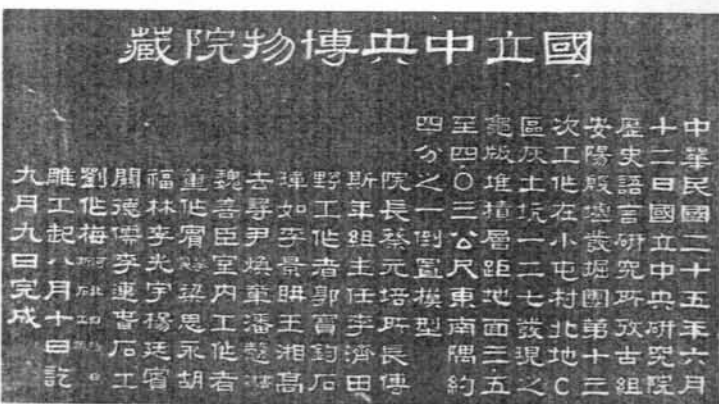 國立中央博物院藏
中華民國二十五年六月
十二日國立中央研究院
歷史語言研究所攷古組
安陽殷墟發掘團第十三
次工作在小屯村北地C
區灰土坑一二七發現之
龜版堆積層距地面三五
至四〇三公尺東南隅約
四分之一倒置模型
院長蔡元培所長傅
斯年組主任李濟田
野工作者郭寶鈞石
璋如李景聃王湘高
去尋尹煥章潘愨
魏善臣室內工作者
董作賓梁思永胡
福林李光宇楊廷賓
關德儒李連春石工
劉作梅
雕工起八月十日訖
九月九日完成